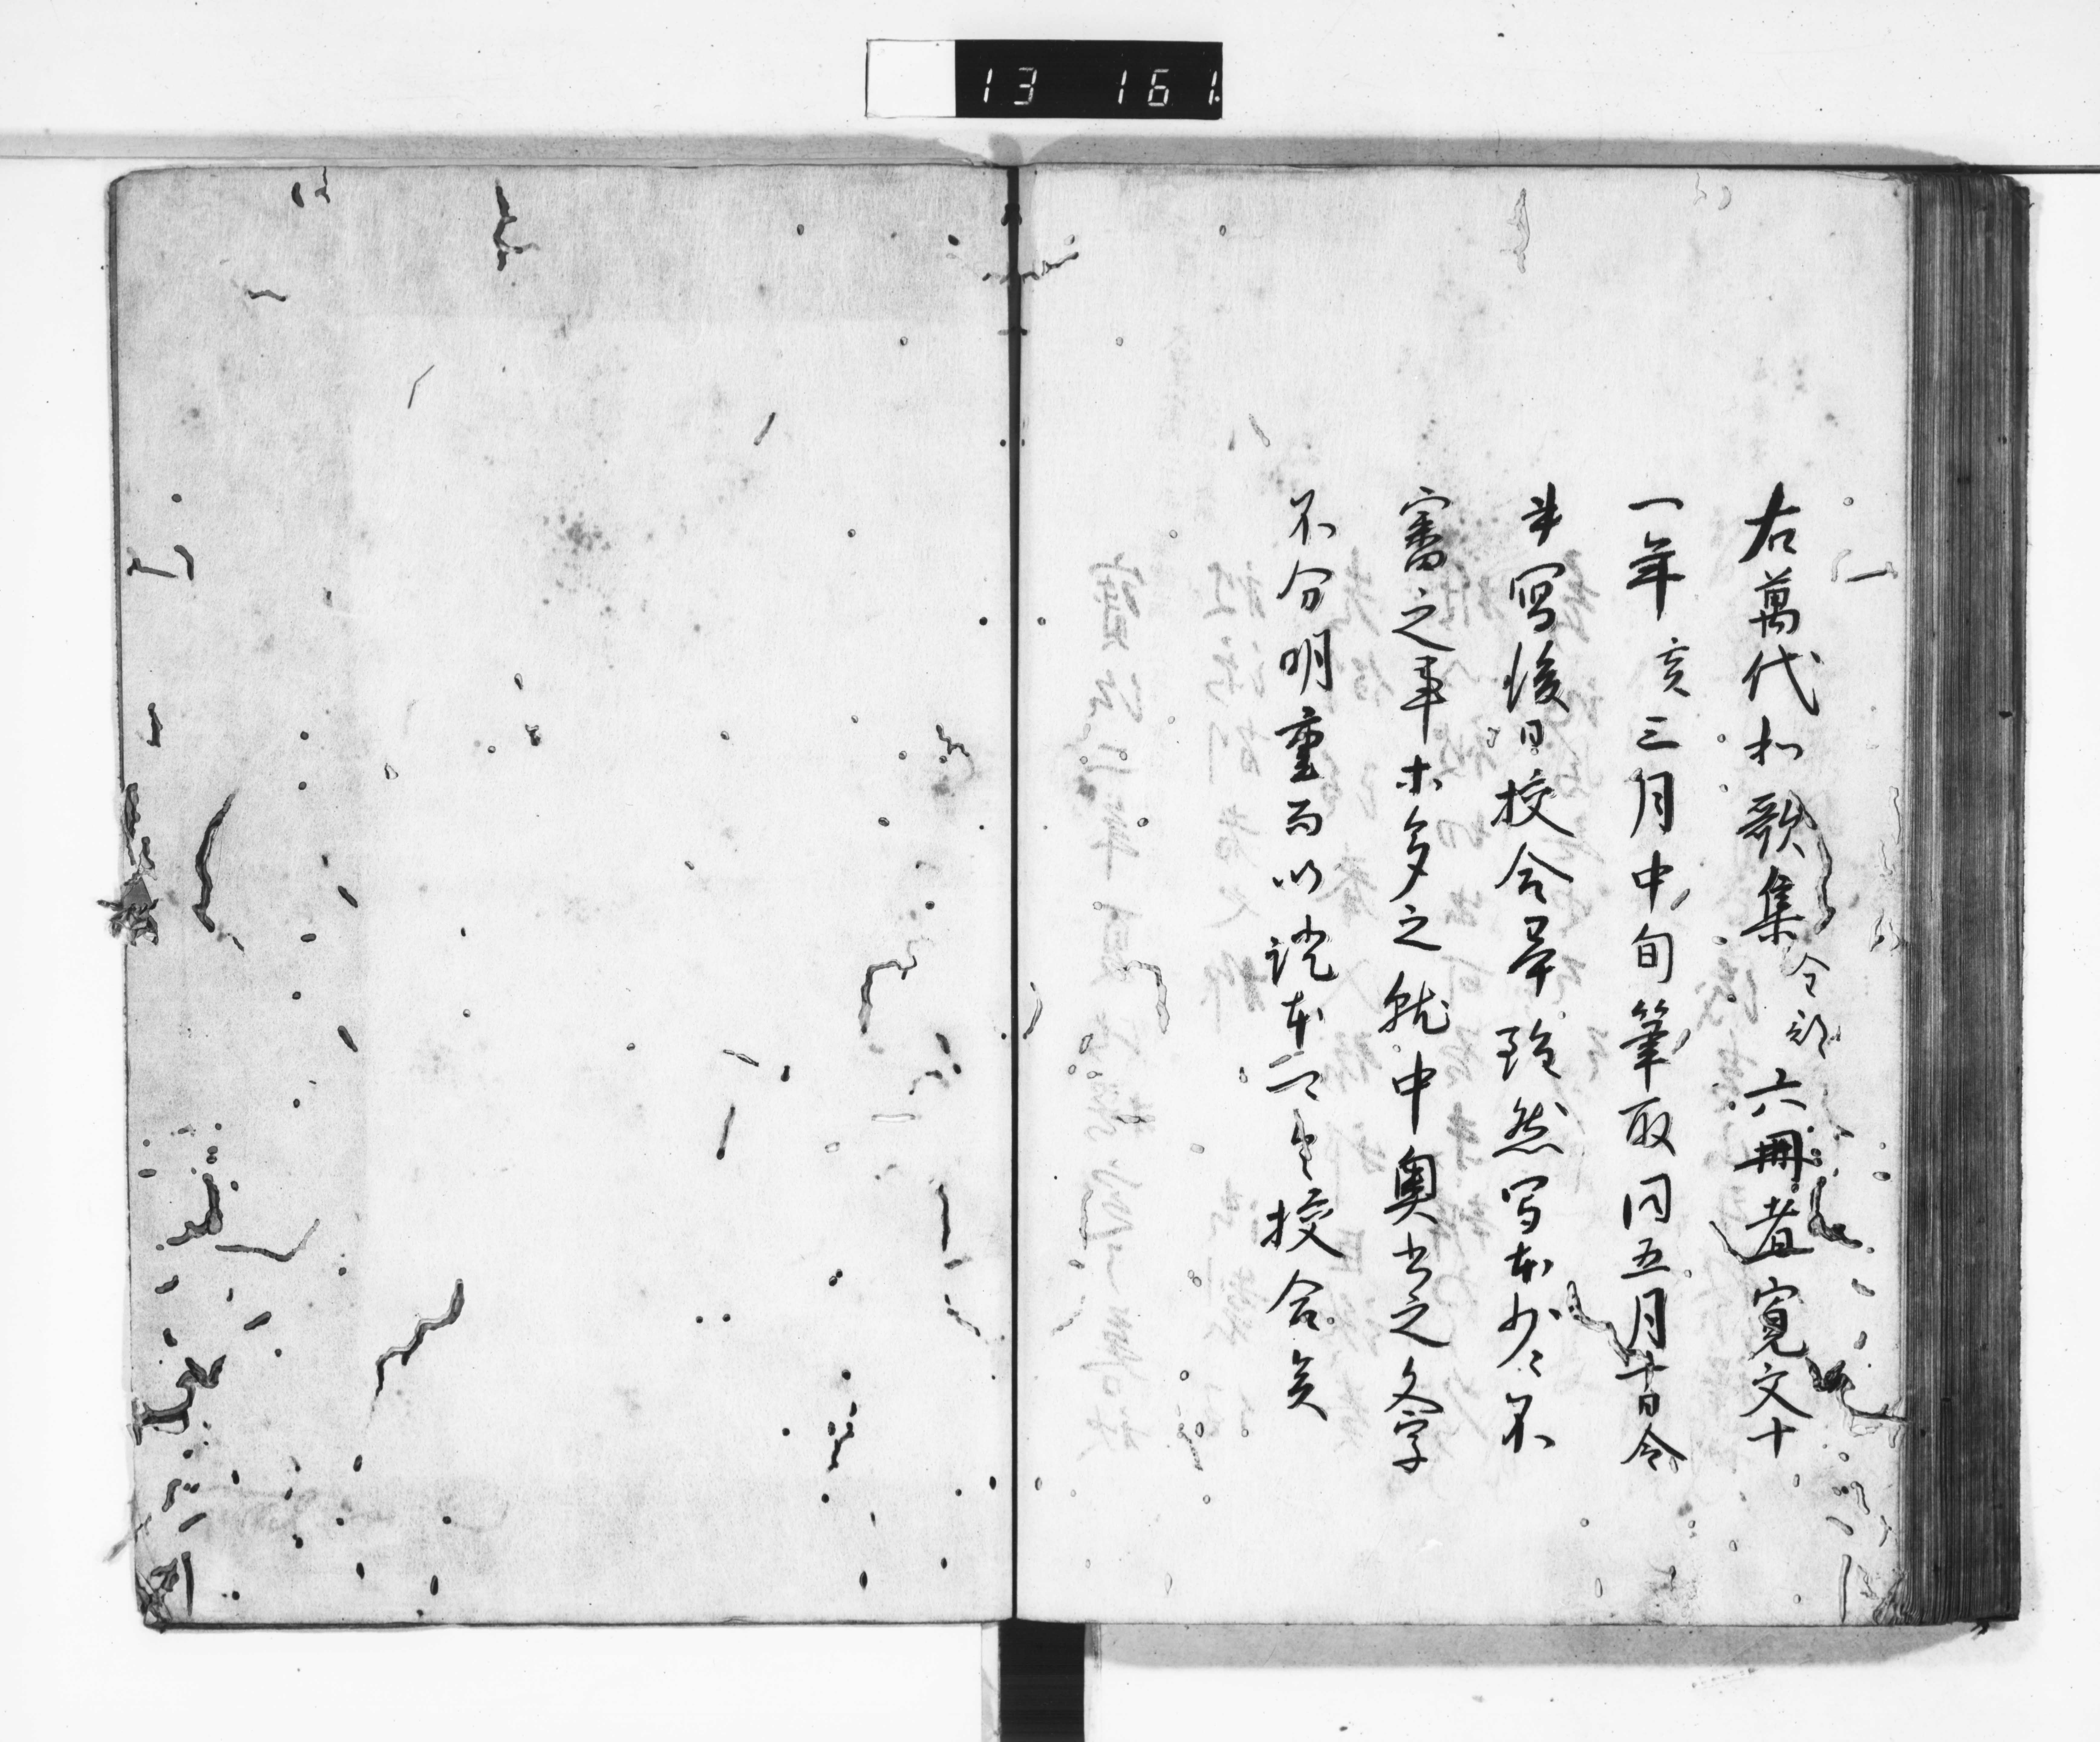 13 161
右萬代和歌集全部六冊者寛文十
一年亥三月中旬筆取同五月十日令
書写後日校合畢雖然写本少々不
審之事木多之就中奥書之文字
不分明重而以証本可令校合矣